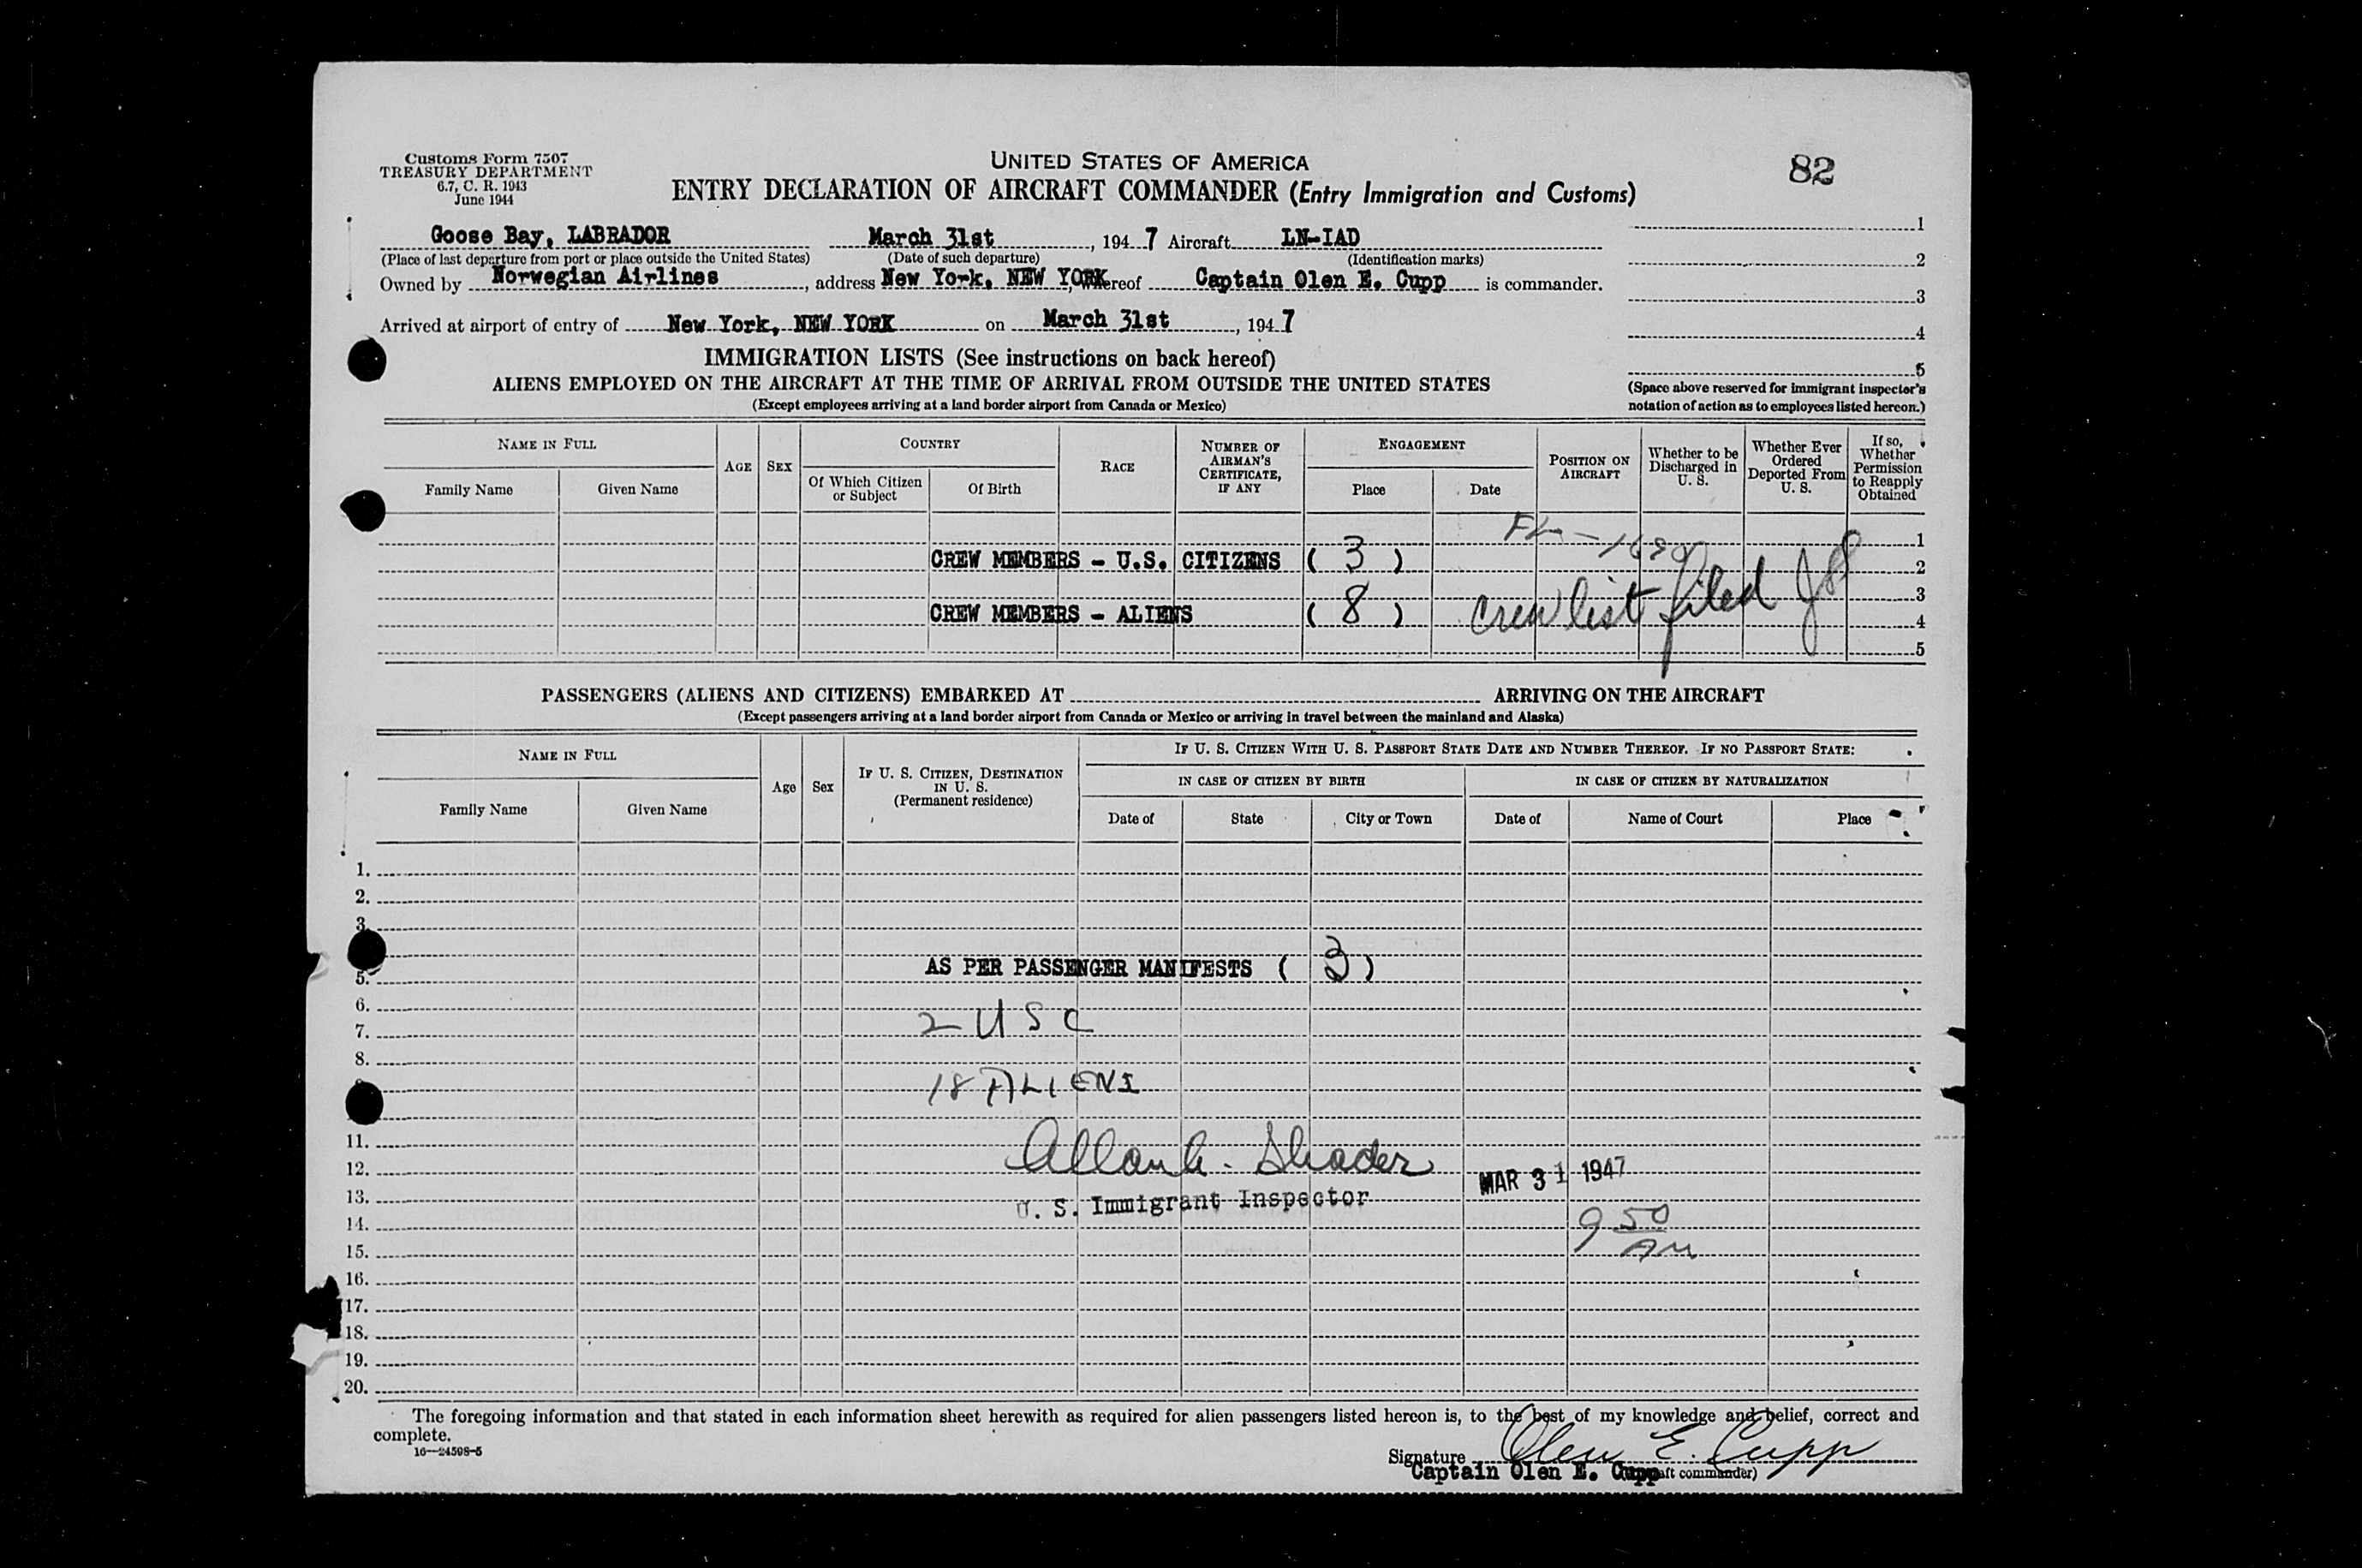 Customs Form 7507
TREASURY DEPARTMENT
6.7, C. R. 1943
June 1944
UNITED STATES OF AMERICA
ENTRY DECLARATION OF AIRCRAFT COMMANDER (Entry Immigration and Customs)
82
Goose Bay, LABRADOR March 31st, 1947 Aircraft LN-IAD
(Place of last departure from port or place outside the United States) (Date of such departure) (Identification marks)
Owned by Norwegian Airlines, address New York, NEW YORK, whereof Captain Olen E. Cupp is commander.
Arrived at airport of entry of New York, NEW YORK on March 31st, 1947
1
2
3
4
5
(Space above reserved for immigrant inspector's
notation of action as to employees listed hereon.)
IMMIGRATION LISTS (See instructions on back hereof)
ALIENS EMPLOYED ON THE AIRCRAFT AT THE TIME OF ARRIVAL FROM OUTSIDE THE UNITED STATES
(Except employees arriving at a land border airport from Canada or Mexico)
NAME IN FULL
Family Name
Given Name
AGE
SEX
COUNTRY
Of Which Citizen
or Subject
Of Birth
RACE
NUMBER OF
AIRMAN'S
CERTIFICATE,
IF ANY
ENGAGEMENT
Place
Date
POSITION ON
AIRCRAFT
Whether to be
Discharged in
U. S.
Whether Ever
Ordered
Deported From
U. S.
If so,
Whether
Permission
to Reapply
Obtained
1
CREW MEMBERS - U.S. CITIZENS ( 3 )
2
3
CREW MEMBERS - ALIENS ( 8 ) Crew list filed
4
5
PASSENGERS (ALIENS AND CITIZENS) EMBARKED AT ARRIVING ON THE AIRCRAFT
(Except passengers arriving at a land border airport from Canada or Mexico or arriving in travel between the mainland and Alaska)
NAME IN FULL
Family Name
Given Name
Age
Sex
IF U. S. CITIZEN, DESTINATION
IN U. S.
(Permanent residence)
IF U. S. CITIZEN WITH U. S. PASSPORT STATE DATE AND NUMBER THEREOF. IF NO PASSPORT STATE:
IN CASE OF CITIZEN BY BIRTH
Date of
State
City or Town
IN CASE OF CITIZEN BY NATURALIZATION
Date of
Name of Court
Place
1.
2.
3.
AS PER PASSENGER MANIFESTS ( 3 )
5.
6.
2 USC
7.
8.
18 ALIENS
11.
Shader
12.
MAR 31 1947
13.
U. S. Immigrant Inspector
14.
9 50
AM
15.
16.
17.
18.
19.
20.
The foregoing information and that stated in each information sheet herewith as required for alien passengers listed hereon is, to the best of my knowledge and belief, correct and
complete.
16—24598-5
Signature Olen E. Cupp
Captain Olen E. Cupp aft commander)